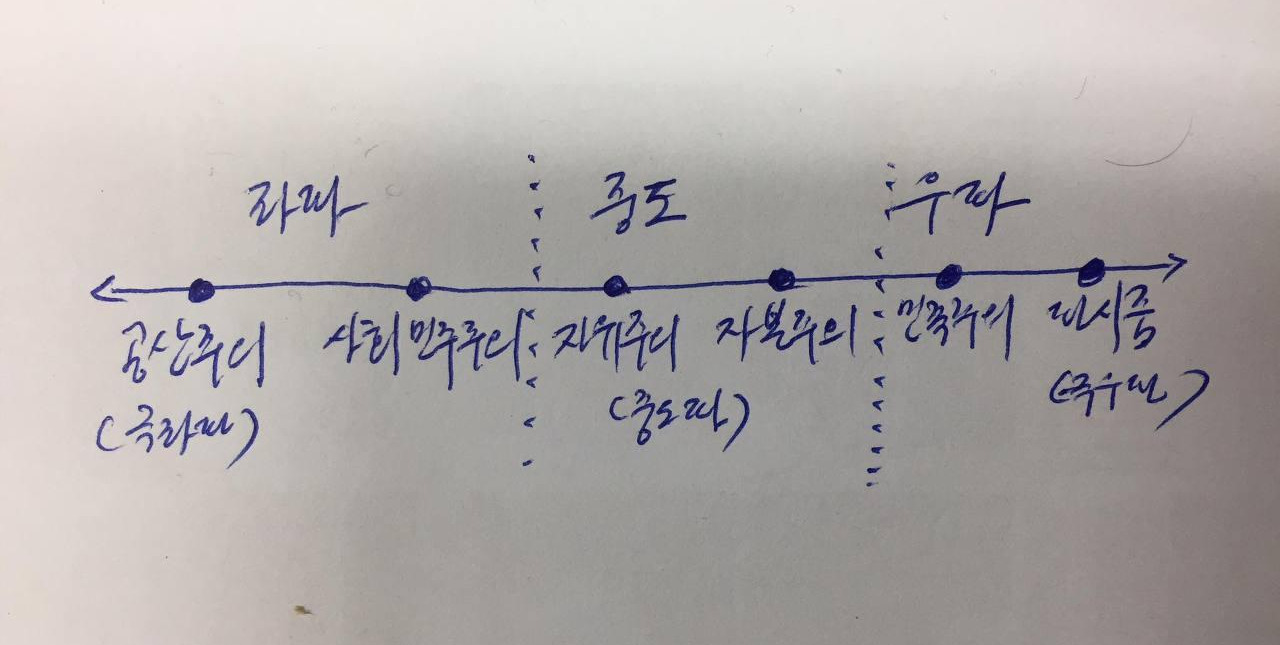 좌파 중도 우파
공산주의 사회민주주의 자유주의 자본주의 민족주의 파시즘
(극좌파) (중도파) (극우파)